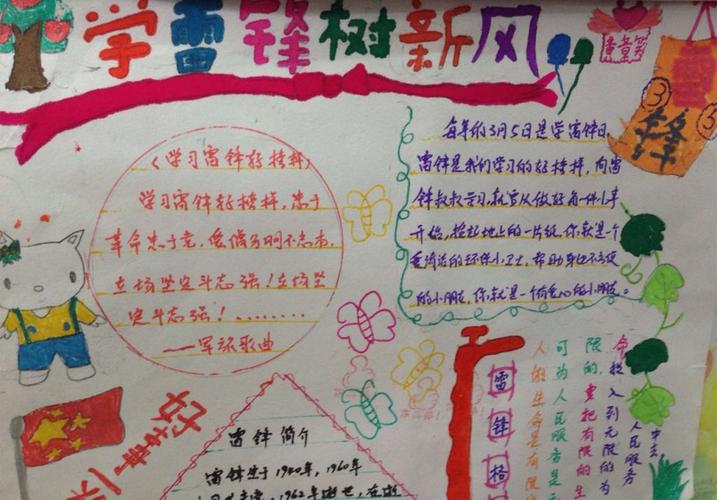 学雷锋树新风
雷
锋
3
3
《学习雷锋好榜样》
学习雷锋好榜样,忠于
革命忠于党,爱憎分明不忘本,
立场坚定斗志强!立场坚
定斗志强!........
——军旅歌曲
每年的3月5日是学雷锋日,
雷锋是我们学习的好榜样,向雷
锋叔叔学习,就 从做好每件小事
开始,捡起地上的一片纸,你就是一个
爱清洁的环保小卫士,帮助身边不方便
的小朋友,你就是一个有爱心的小朋友。
雷锋简介
雷锋生于1940年,1960年
1962年逝世,在
雷锋格
人的生命是有限
可为人民服务是无
限的,我要把有限的生
命投入到无限的为
人民服务
中去。